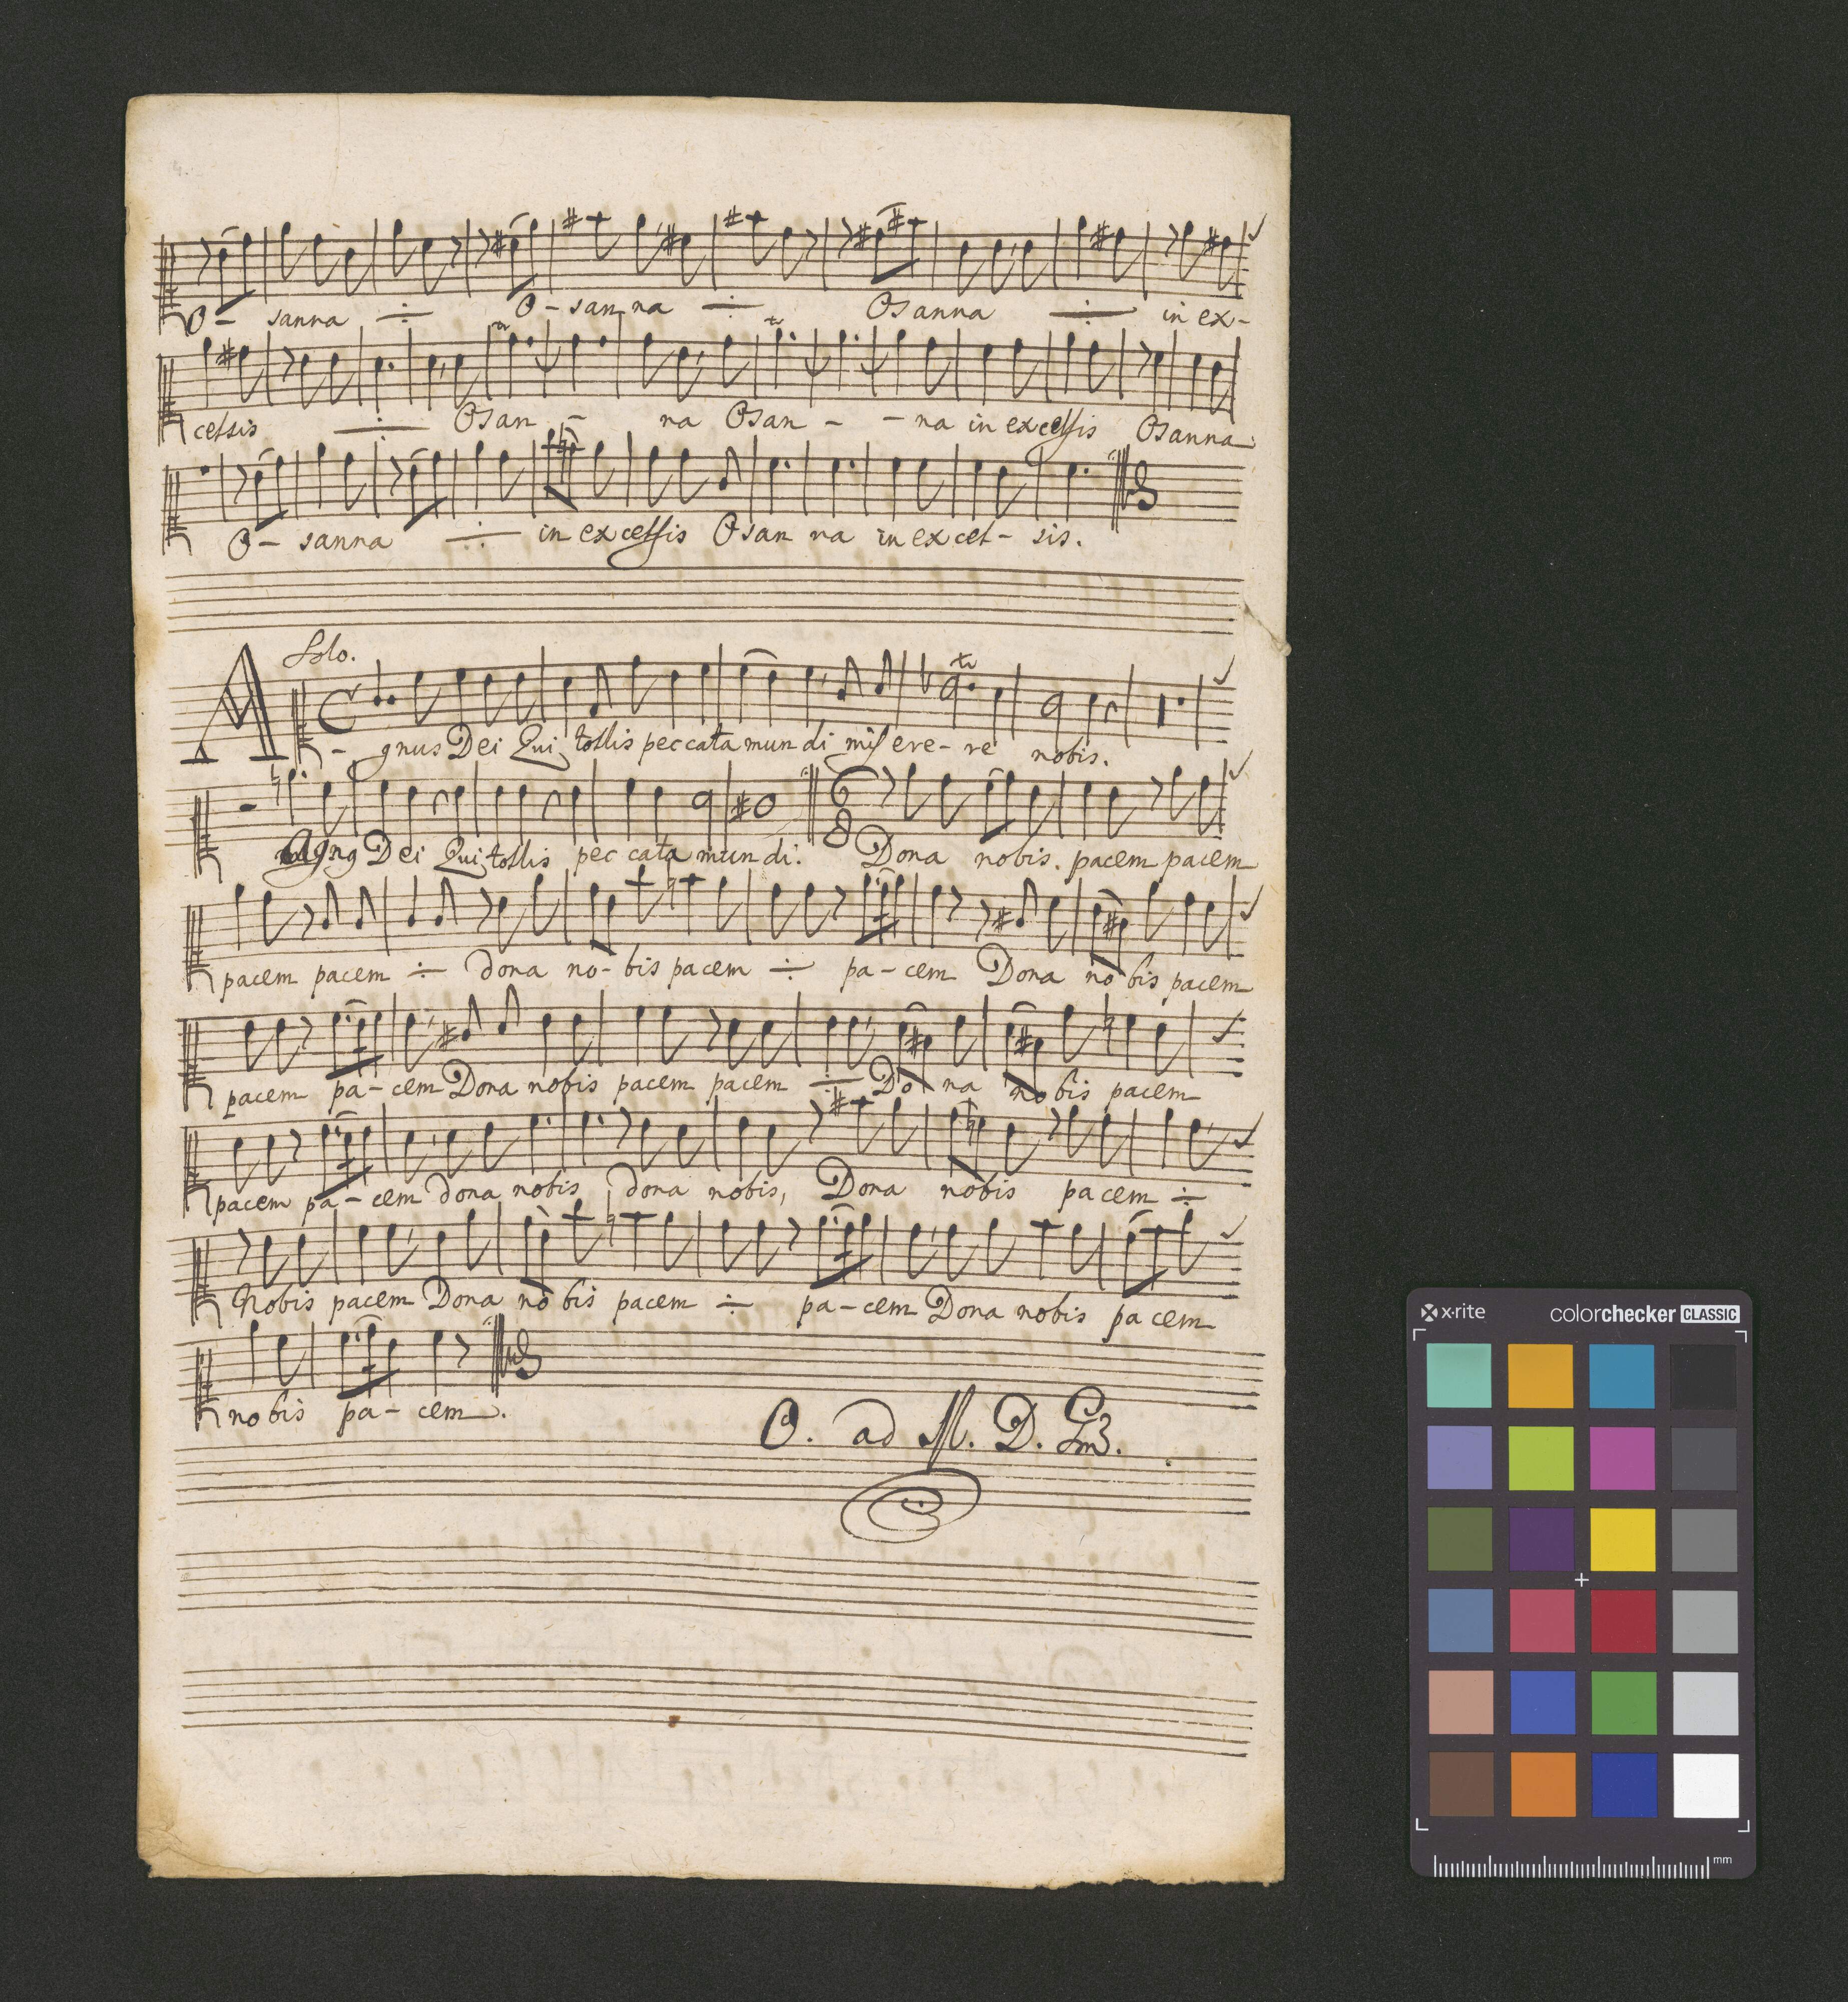 4.
O - sanna ÷ O - san na ÷ Osanna ÷ in ex-
celsis ÷ Osan - na Osan - - na in excelsis Osanna
O - sanna ÷ in excelsis Osan na in excel - sis.
Solo.
A - gnus Dei Qui tollis peccata mundi miserere - re nobis.
Dei Qui tollis pec cata mun di. Dona nobis. pacem pacem
pacem pacem ÷ dona no - bis pacem ÷ pa - cem Dona no bis pacem
pacem pa - cem Dona nobis pacem pacem ÷ Do na no bis pacem
pacem pa - cem dona nobis dona nobis, Dona nobis pacem ÷
Nobis pacem Dona no bis pacem ÷ pa - cem Dona nobis pa cem
no bis pa - cem.
O. ad M. D. G
x·rite colorchecker CLASSIC
mm